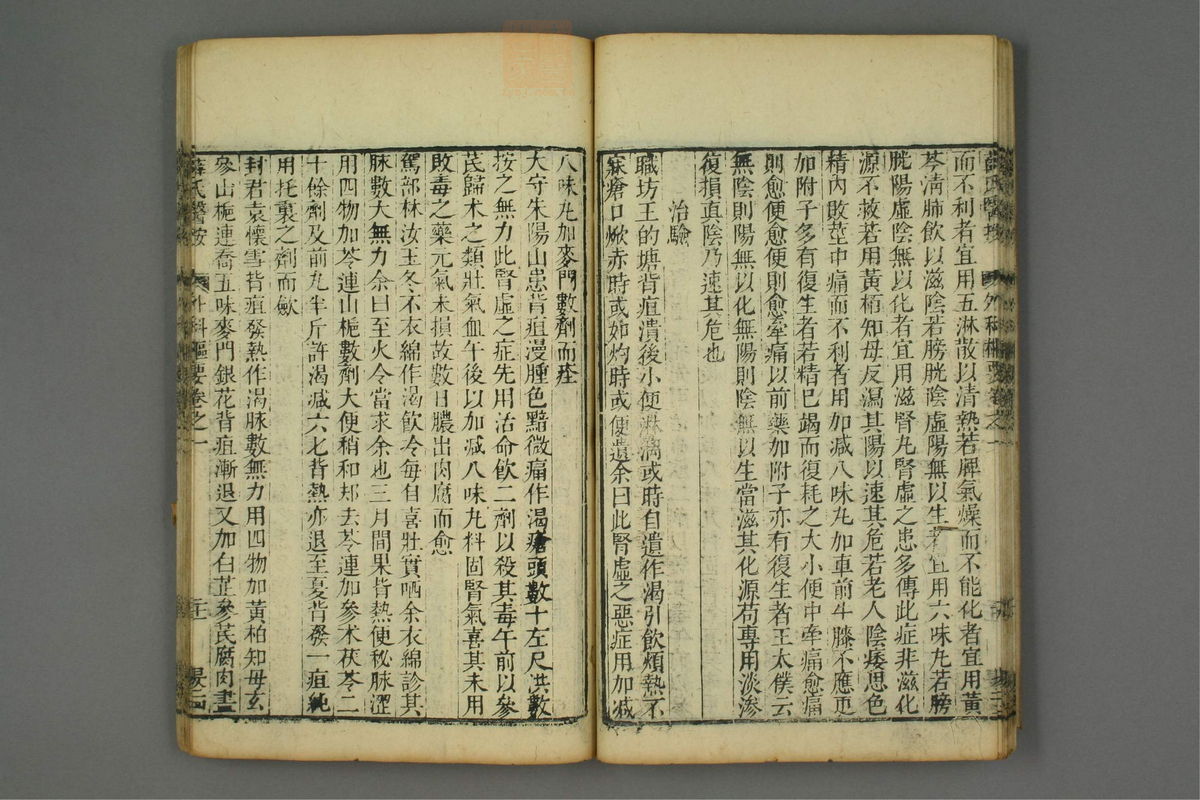 而不利者宜用五淋散以清熱若脾氣燥而不能化者宜用黃
芩清肺飲以滋陰若膀胱陰虛陽無以生者宜用六味丸若膀
胱陽虛陰無以化者宜用滋腎丸腎虛之患多傳此症非滋化
源不救若用黃栢知母反瀉其陽以速其危若老人陰痿思色
精內敗莖中痛而不利者用加减八味丸加車前牛膝不應更
加附子多有復生者若精已竭而復耗之大小便中牽痛愈痛
則愈便愈便則愈牽痛以前藥加附子亦有復生者王太僕云
無陰則陽無以化無陽則陰無以生當滋其化源苟專用淡滲
復損真陰乃速其危也
治驗
職坊王的塘背疽潰後小便淋滴或時自遺作渴引飲煩熱不
寐瘡口焮赤時或如灼時或便遺余曰此腎虛之惡症用加减
八味丸加麥門數劑而痊
大守朱陽山患背疽漫腫色黯微痛作渴瘡頭數十左尺洪數
按之無力此腎虛之症先用活命飲二劑以殺其毒午前以參
芪歸术之類壯氣血午後以加减八味丸料固腎氣喜其未用
敗毒之藥元氣未損故數日膿出肉腐而愈
駕部林汝玉冬不衣綿作渴飲冷每自喜壯實哂余衣綿診其
脉數大無力余曰至火令當求余也三月間果背熱便秘脉澀
用四物加芩連山梔數劑大便稍和却去芩連加參术茯苓二
十餘劑及前丸半斤許渴减六七背熱亦退至夏背發一疽純
用托裏之劑而斂
封君袁懷雪背疽發熱作渴脉數無力用四物加黃柏知母玄
參山梔連喬五味麥門銀花背疽漸退又加白芷參芪腐肉盡
薛氏醫按
外科樞要卷之一